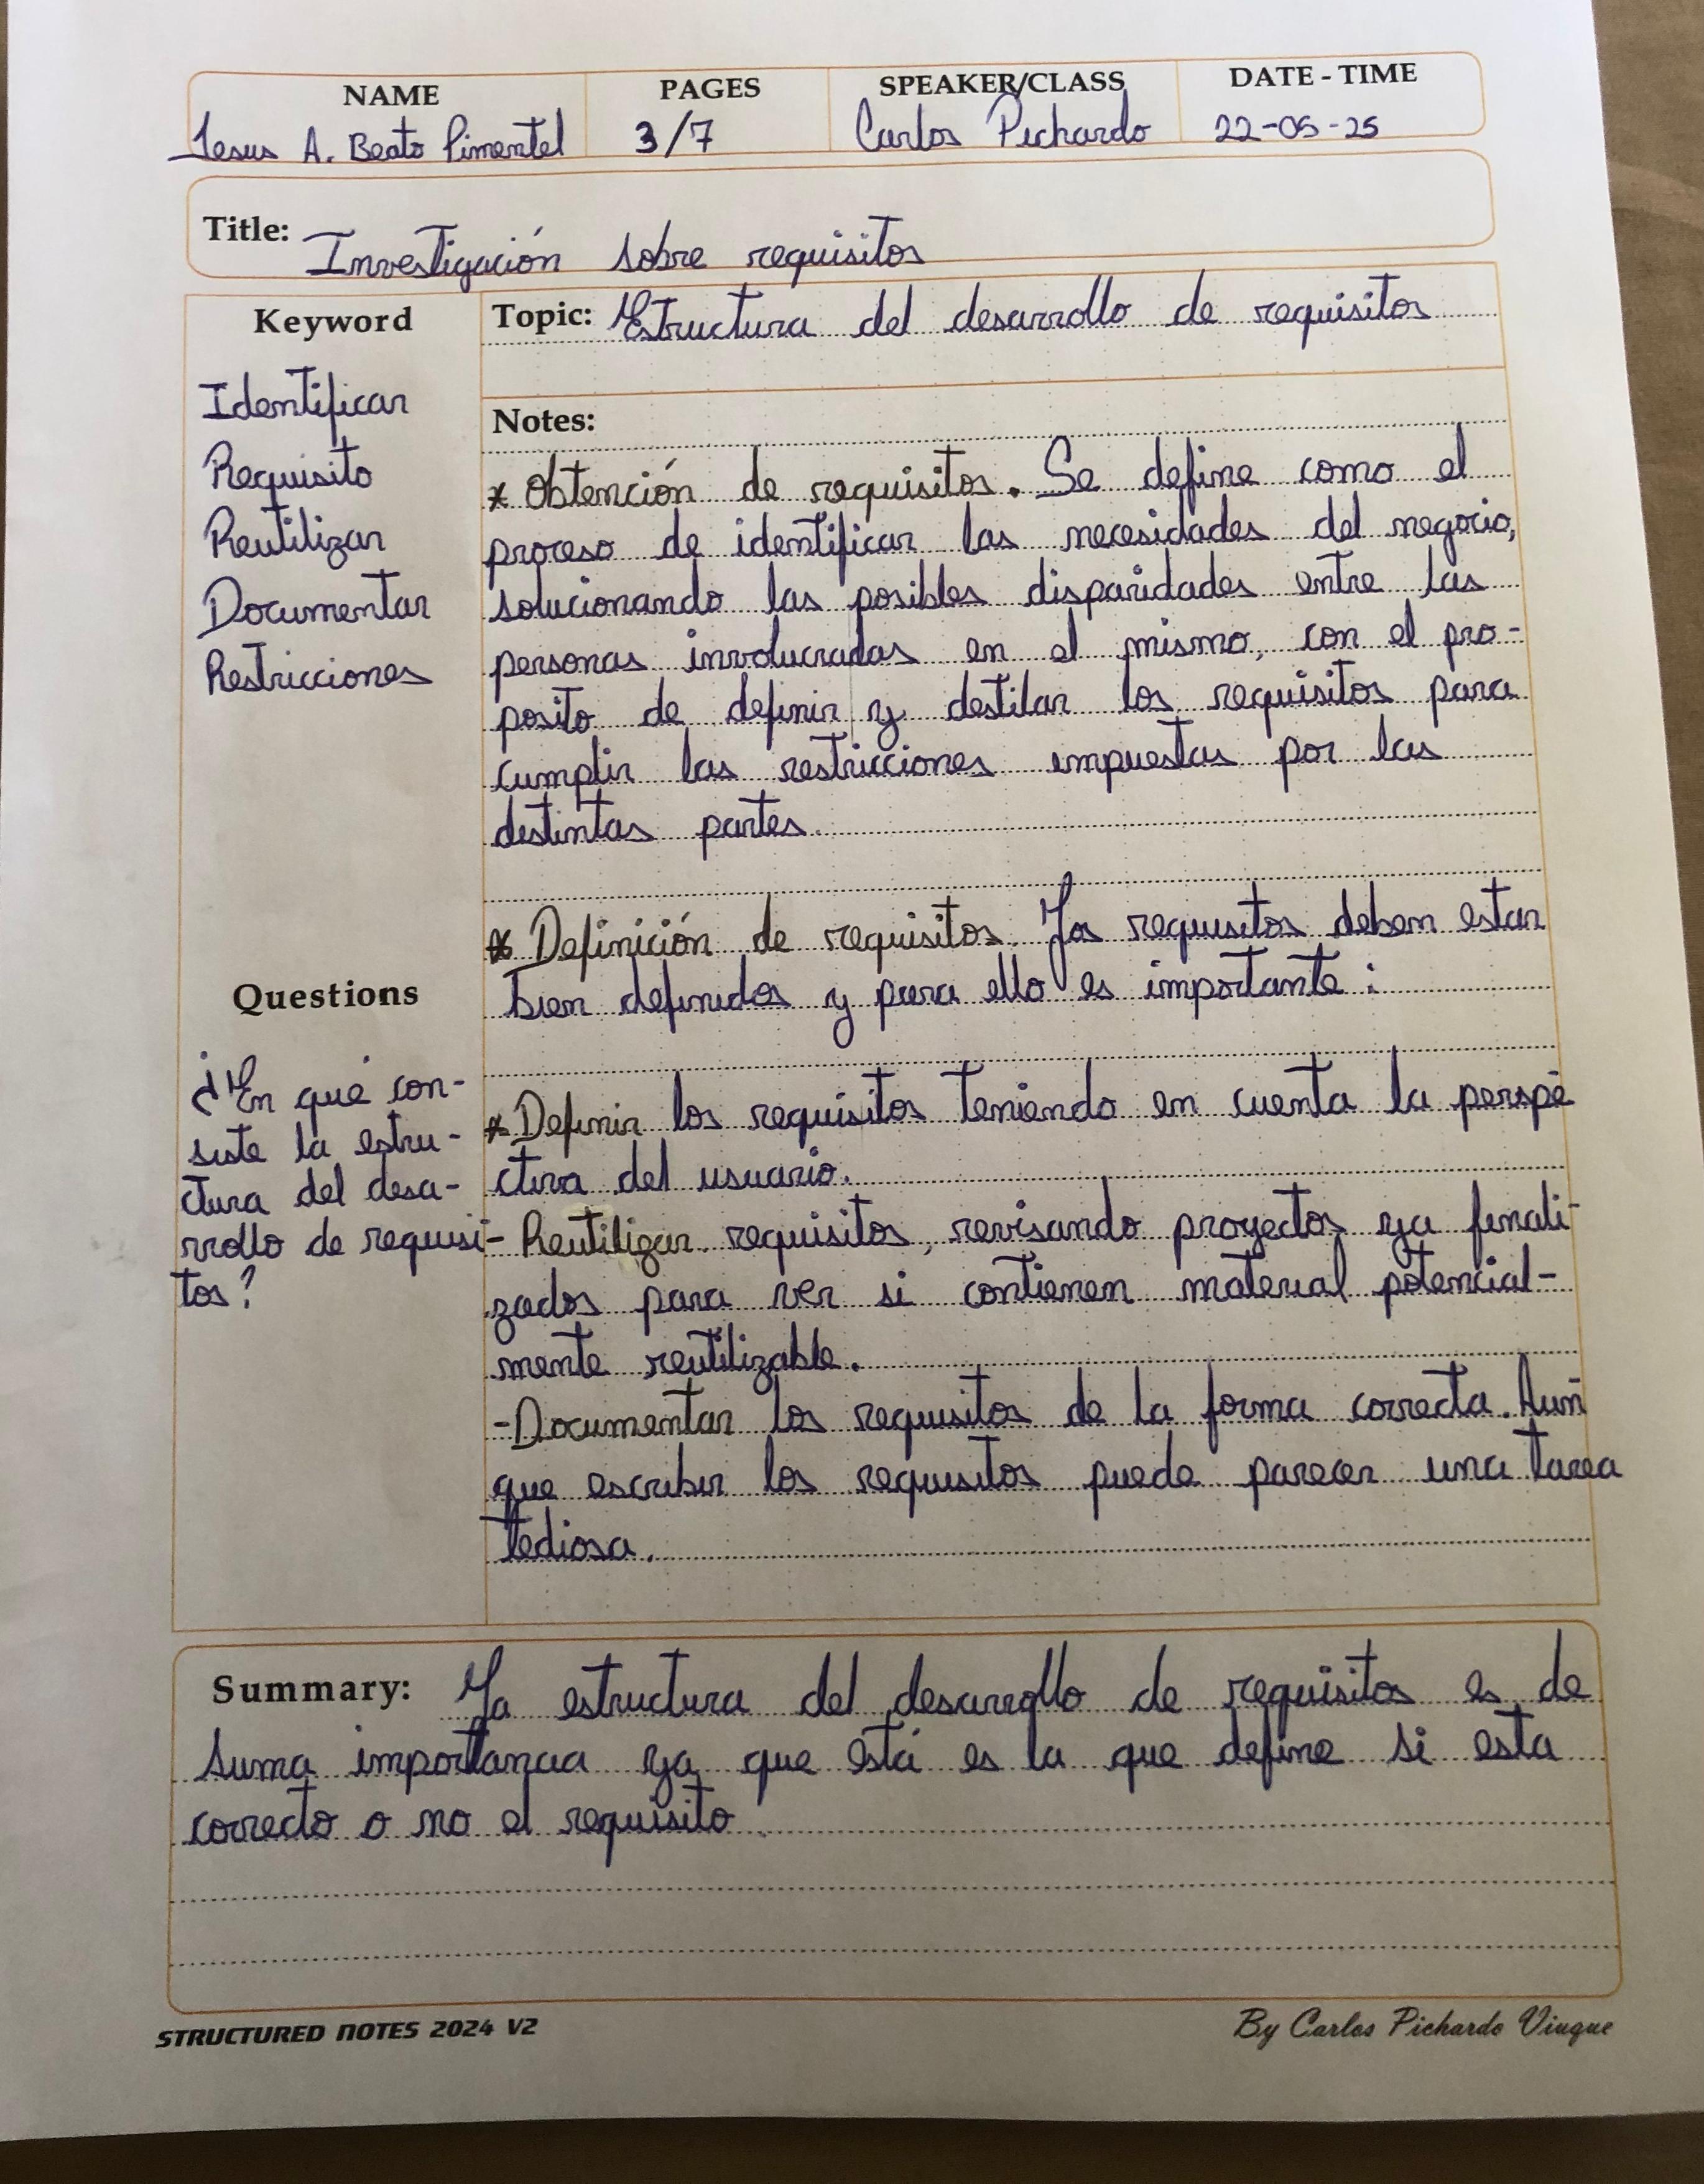 NAME PAGES SPEAKER/CLASS DATE - TIME
Jesus A. Beato Pimentel 3/7 Carlos Pichardo 22-05-25
Title: Investigación sobre requisitos
Keyword
Identificar
Requisito
Reutilizar
Documentar
Restricciones
Questions
¿En qué con-
siste la estru-
ctura del desa-
rrollo de requisi-
tos?
Topic: Estructura del desarrollo de requisitos
Notes:
* Obtención de requisitos. Se define como el
proceso de identificar las necesidades del negocio,
solucionando las posibles disparidades entre las
personas involucradas en el mismo, con el pro-
posito de definir y destilar los requisitos para
cumplir las restricciones impuestas por las
distintas partes.
* Definición de requisitos. Los requisitos deben estar
bien definidos y para ello es importante:
* Definir los requisitos teniendo en cuenta la perspe
ctiva del usuario.
- Reutilizar requisitos, revisando proyectos ya finali-
zados para ver si contienen material potencial-
mente reutilizable.
- Documentar los requisitos de la forma correcta. Aun
que escribir los requisitos puede parecer una tarea
tediosa.
Summary: La estructura del desarrollo de requisitos es de
suma importancia ya que está es la que define si esta
correcto o no el requisito.
STRUCTURED NOTES 2024 V2 By Carlos Pichardo Viuque